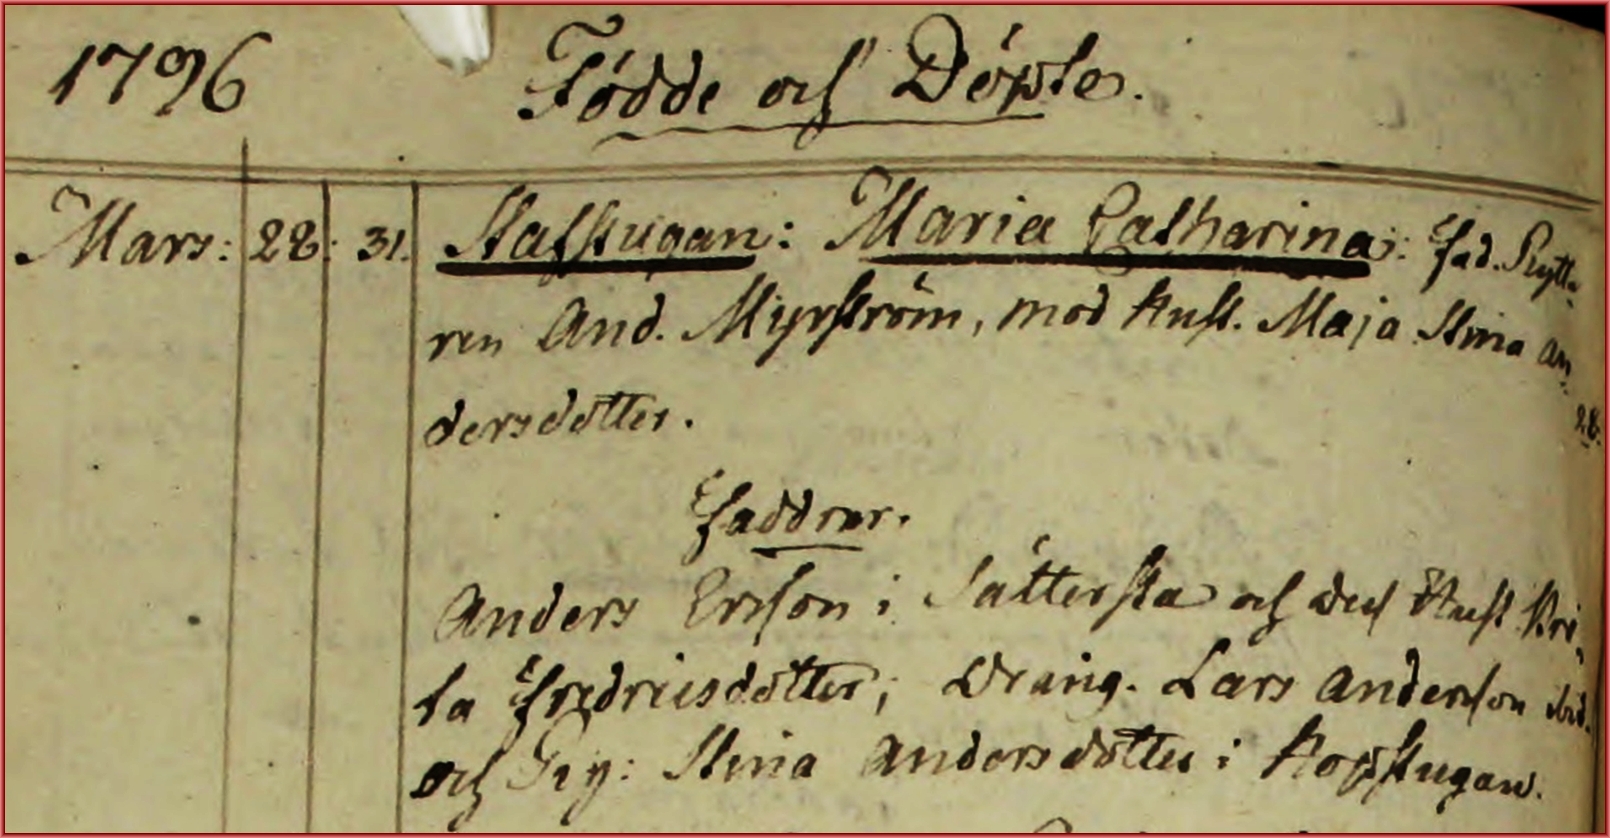 1796 Födde och Döpte.
Mars: 28: 31. Stafstugan: Maria Catharina: fad. Rytta-
ren And. Myrström, mod Hust. Maja Stina An-
dersdotter. 28.
Faddrar.
Anders Ersson i Sättersta och dess Hust
Fredricsdotter; Dräng. Lars Anderson ibid.
och Pig: Stina Andersdotter i Kopstugan.